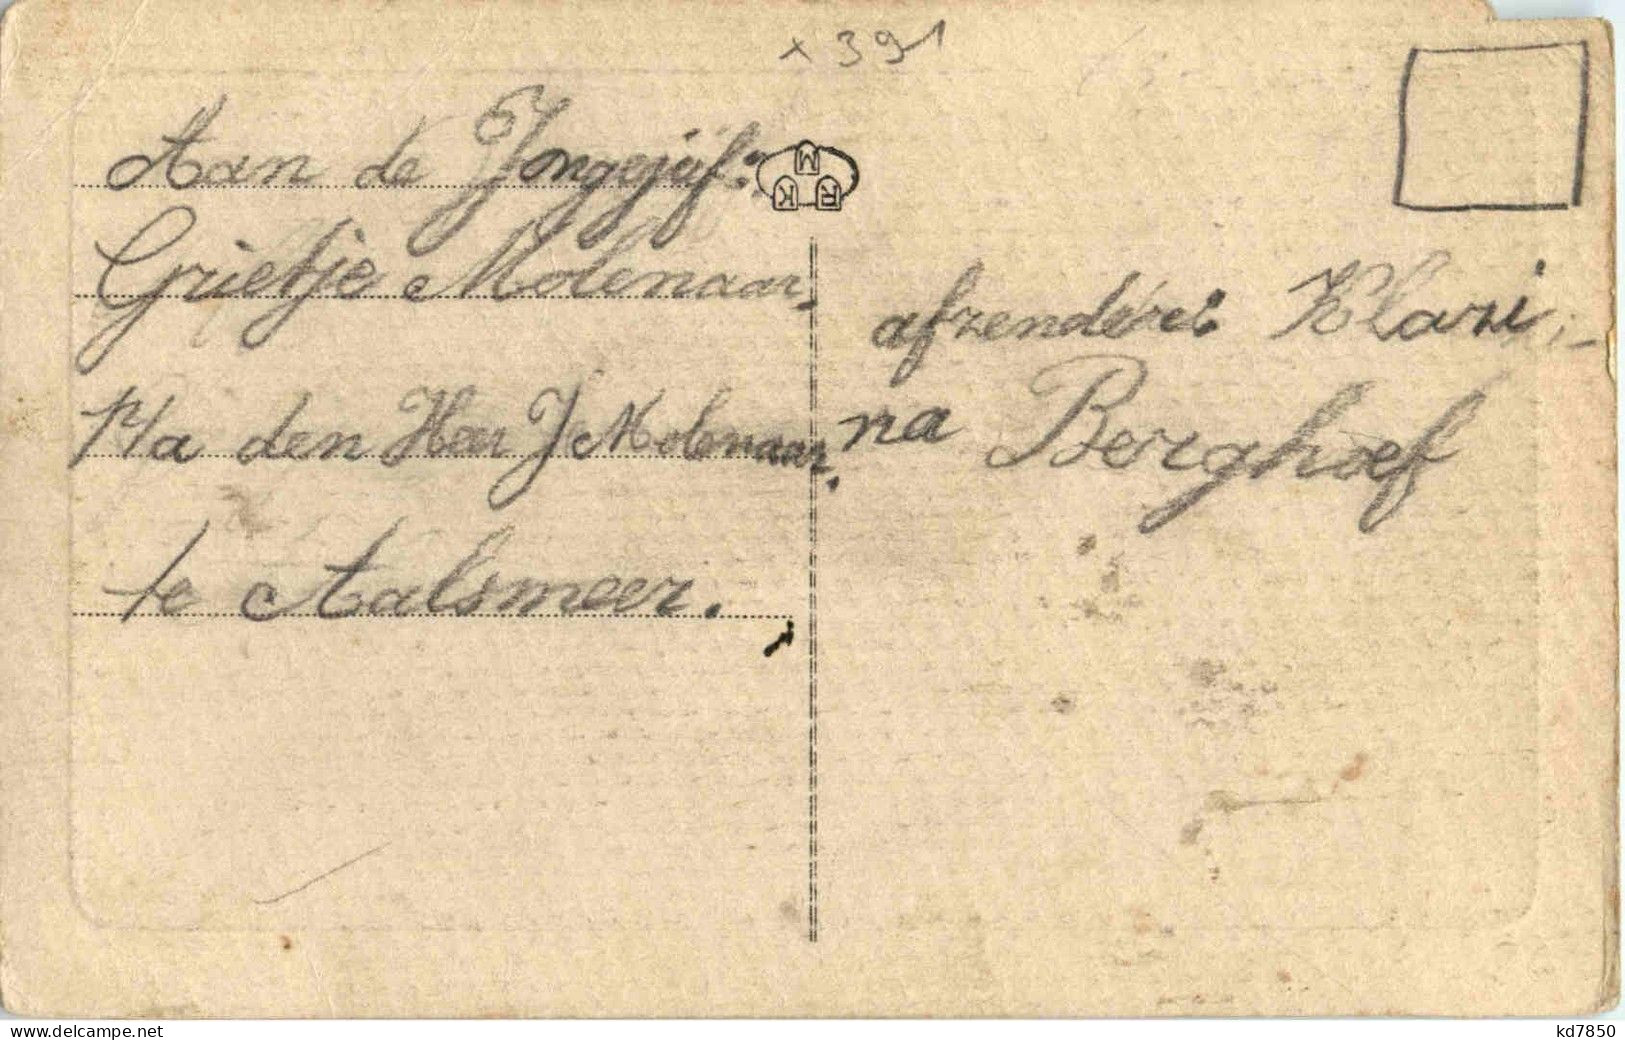 x 391
Aan de Jongejuf:
Grietje Molenaar,
p/a den Heer J Molenaar,
te Aalsmeer.
M
K R
afzenderes Klazi-
na Berghoef
delcampe.net
kd7850